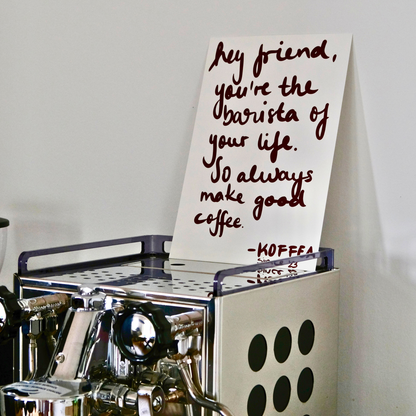 hey friend,
you're the
barista of
your life.
So always
make good
coffee.
-KOFFEA